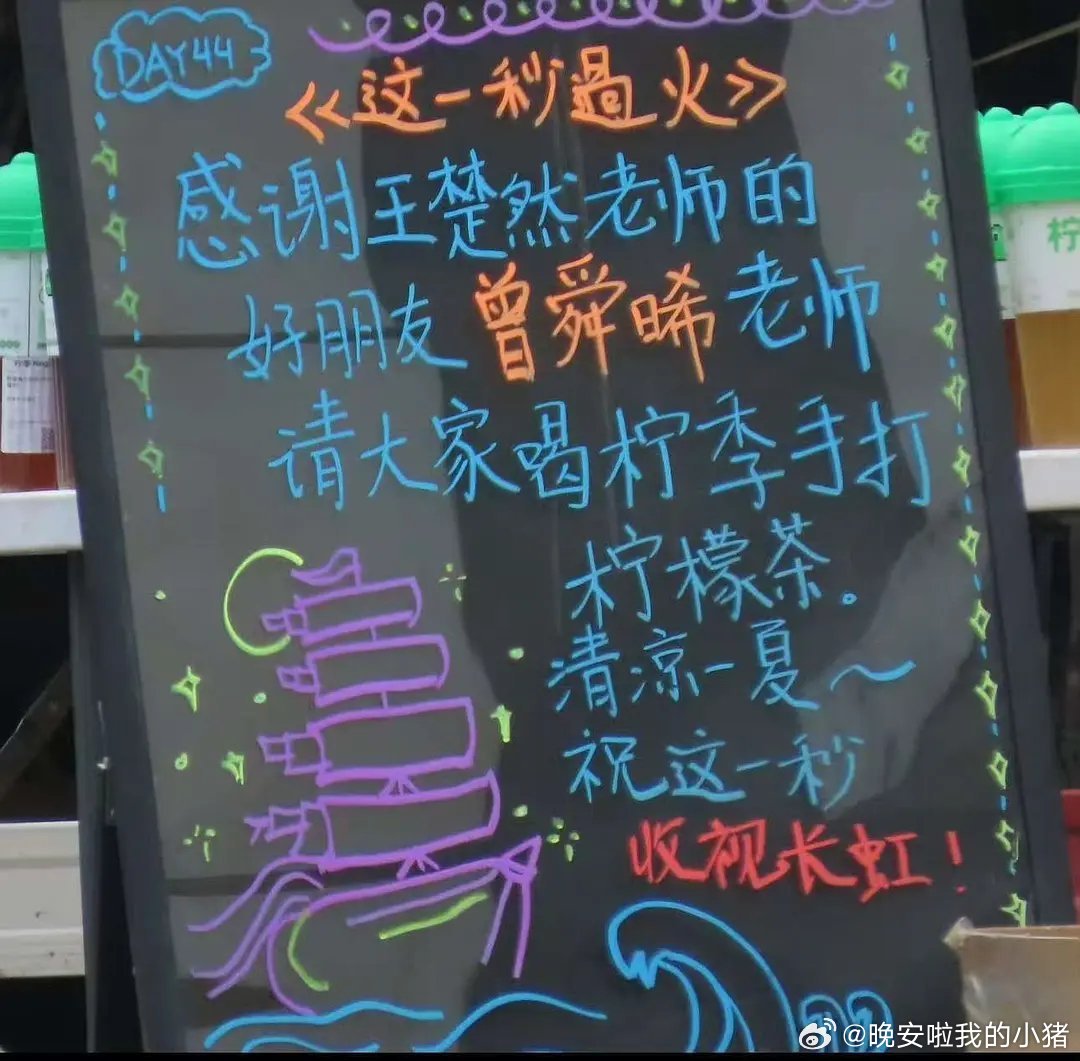 DAY44
《这一秒過火》
感谢王楚然老师的
好朋友曾舜晞老师
请大家喝柠季手打
柠檬茶。
清凉一夏～
祝这一秒
收视长虹！
柠
@晚安啦我的小猪